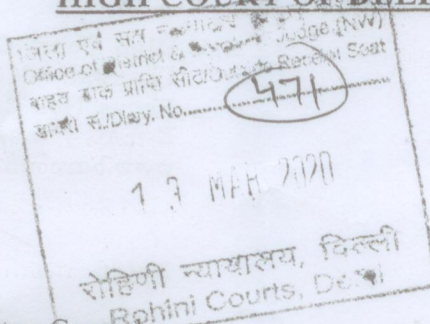 HIGH COURT OF DELHI
जिला एवं सत्र
Office of District & Sessions Judge (NW)
बाहरी डाक प्राप्ति सीट/Outside Receipt Seat
डायरी सं./Diary. No. 471
13 MAR 2020
रोहिणी न्यायालय, दिल्ली
Rohini Courts, Delhi